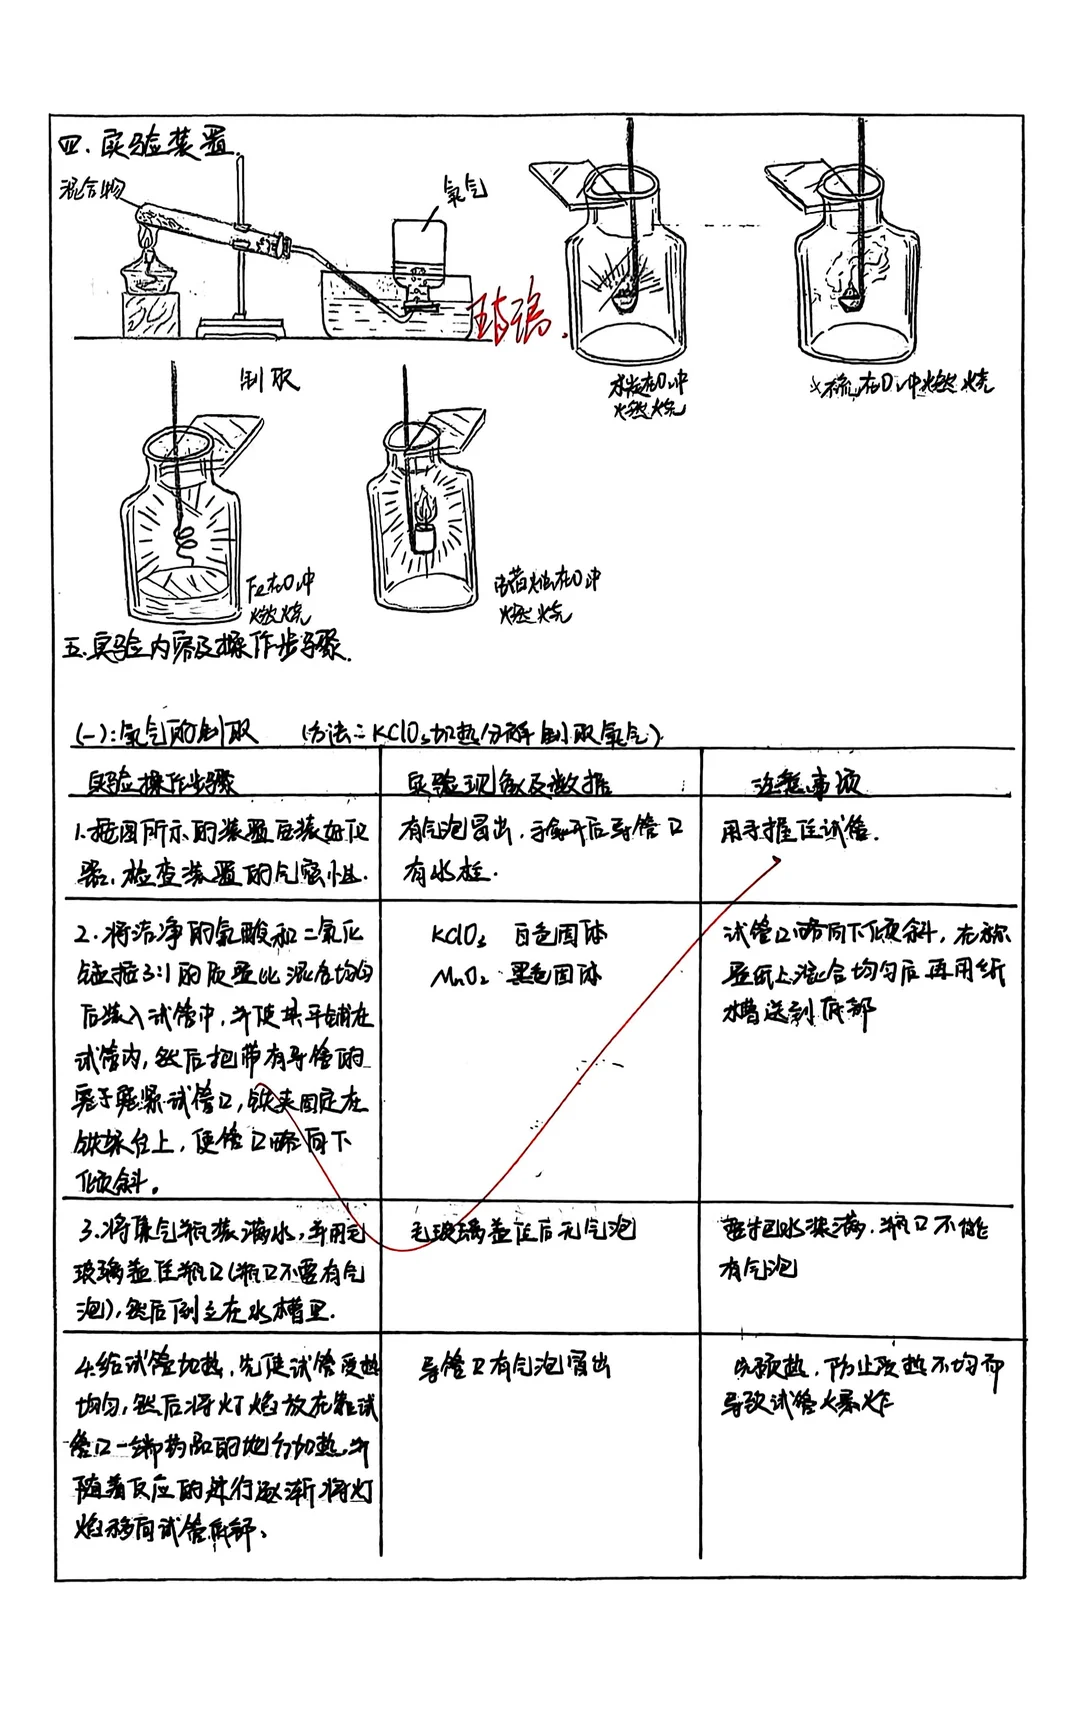 四、实验装置
混合物
氧气
制取
木炭在O₂中
燃烧
硫在O₂中燃烧
Fe在O₂中
燃烧
蜡烛在O₂中
燃烧
五、实验内容及操作步骤.
(一):氧气的制取 (方法二 KClO₃加热分解制取氧气)
实验操作步骤
实验现象及数据
注意事项
1.按图所示的装置安装好仪
器,检查装置的气密性.
有气泡冒出,手离开后导管口
有水柱.
用手握住试管.
2.将洁净的氯酸和二氧化
锰按3:1的质量比混合均匀
后装入试管中,并使其平铺在
试管内,然后把带有导管的
塞子塞紧试管口,铁夹固定在
铁架台上,使管口略向下
倾斜。
KClO₃ 白色固体
MnO₂ 黑色固体
试管口略向下倾斜,在称
量纸上混合均匀后再用纸
槽送到底部
3.将集气瓶装满水,并用毛
玻璃盖住瓶口(瓶口不要有气
泡),然后倒立在水槽里.
毛玻璃盖住后无气泡
要把水装满,瓶口不能
有气泡
4.给试管加热,先使试管受热
均匀,然后将灯焰放在靠试
管口一端药品的地方加热,并
随着反应的进行逐渐将灯
焰移向试管底部。
导管口有气泡冒出
先预热,防止受热不均而
导致试管爆炸